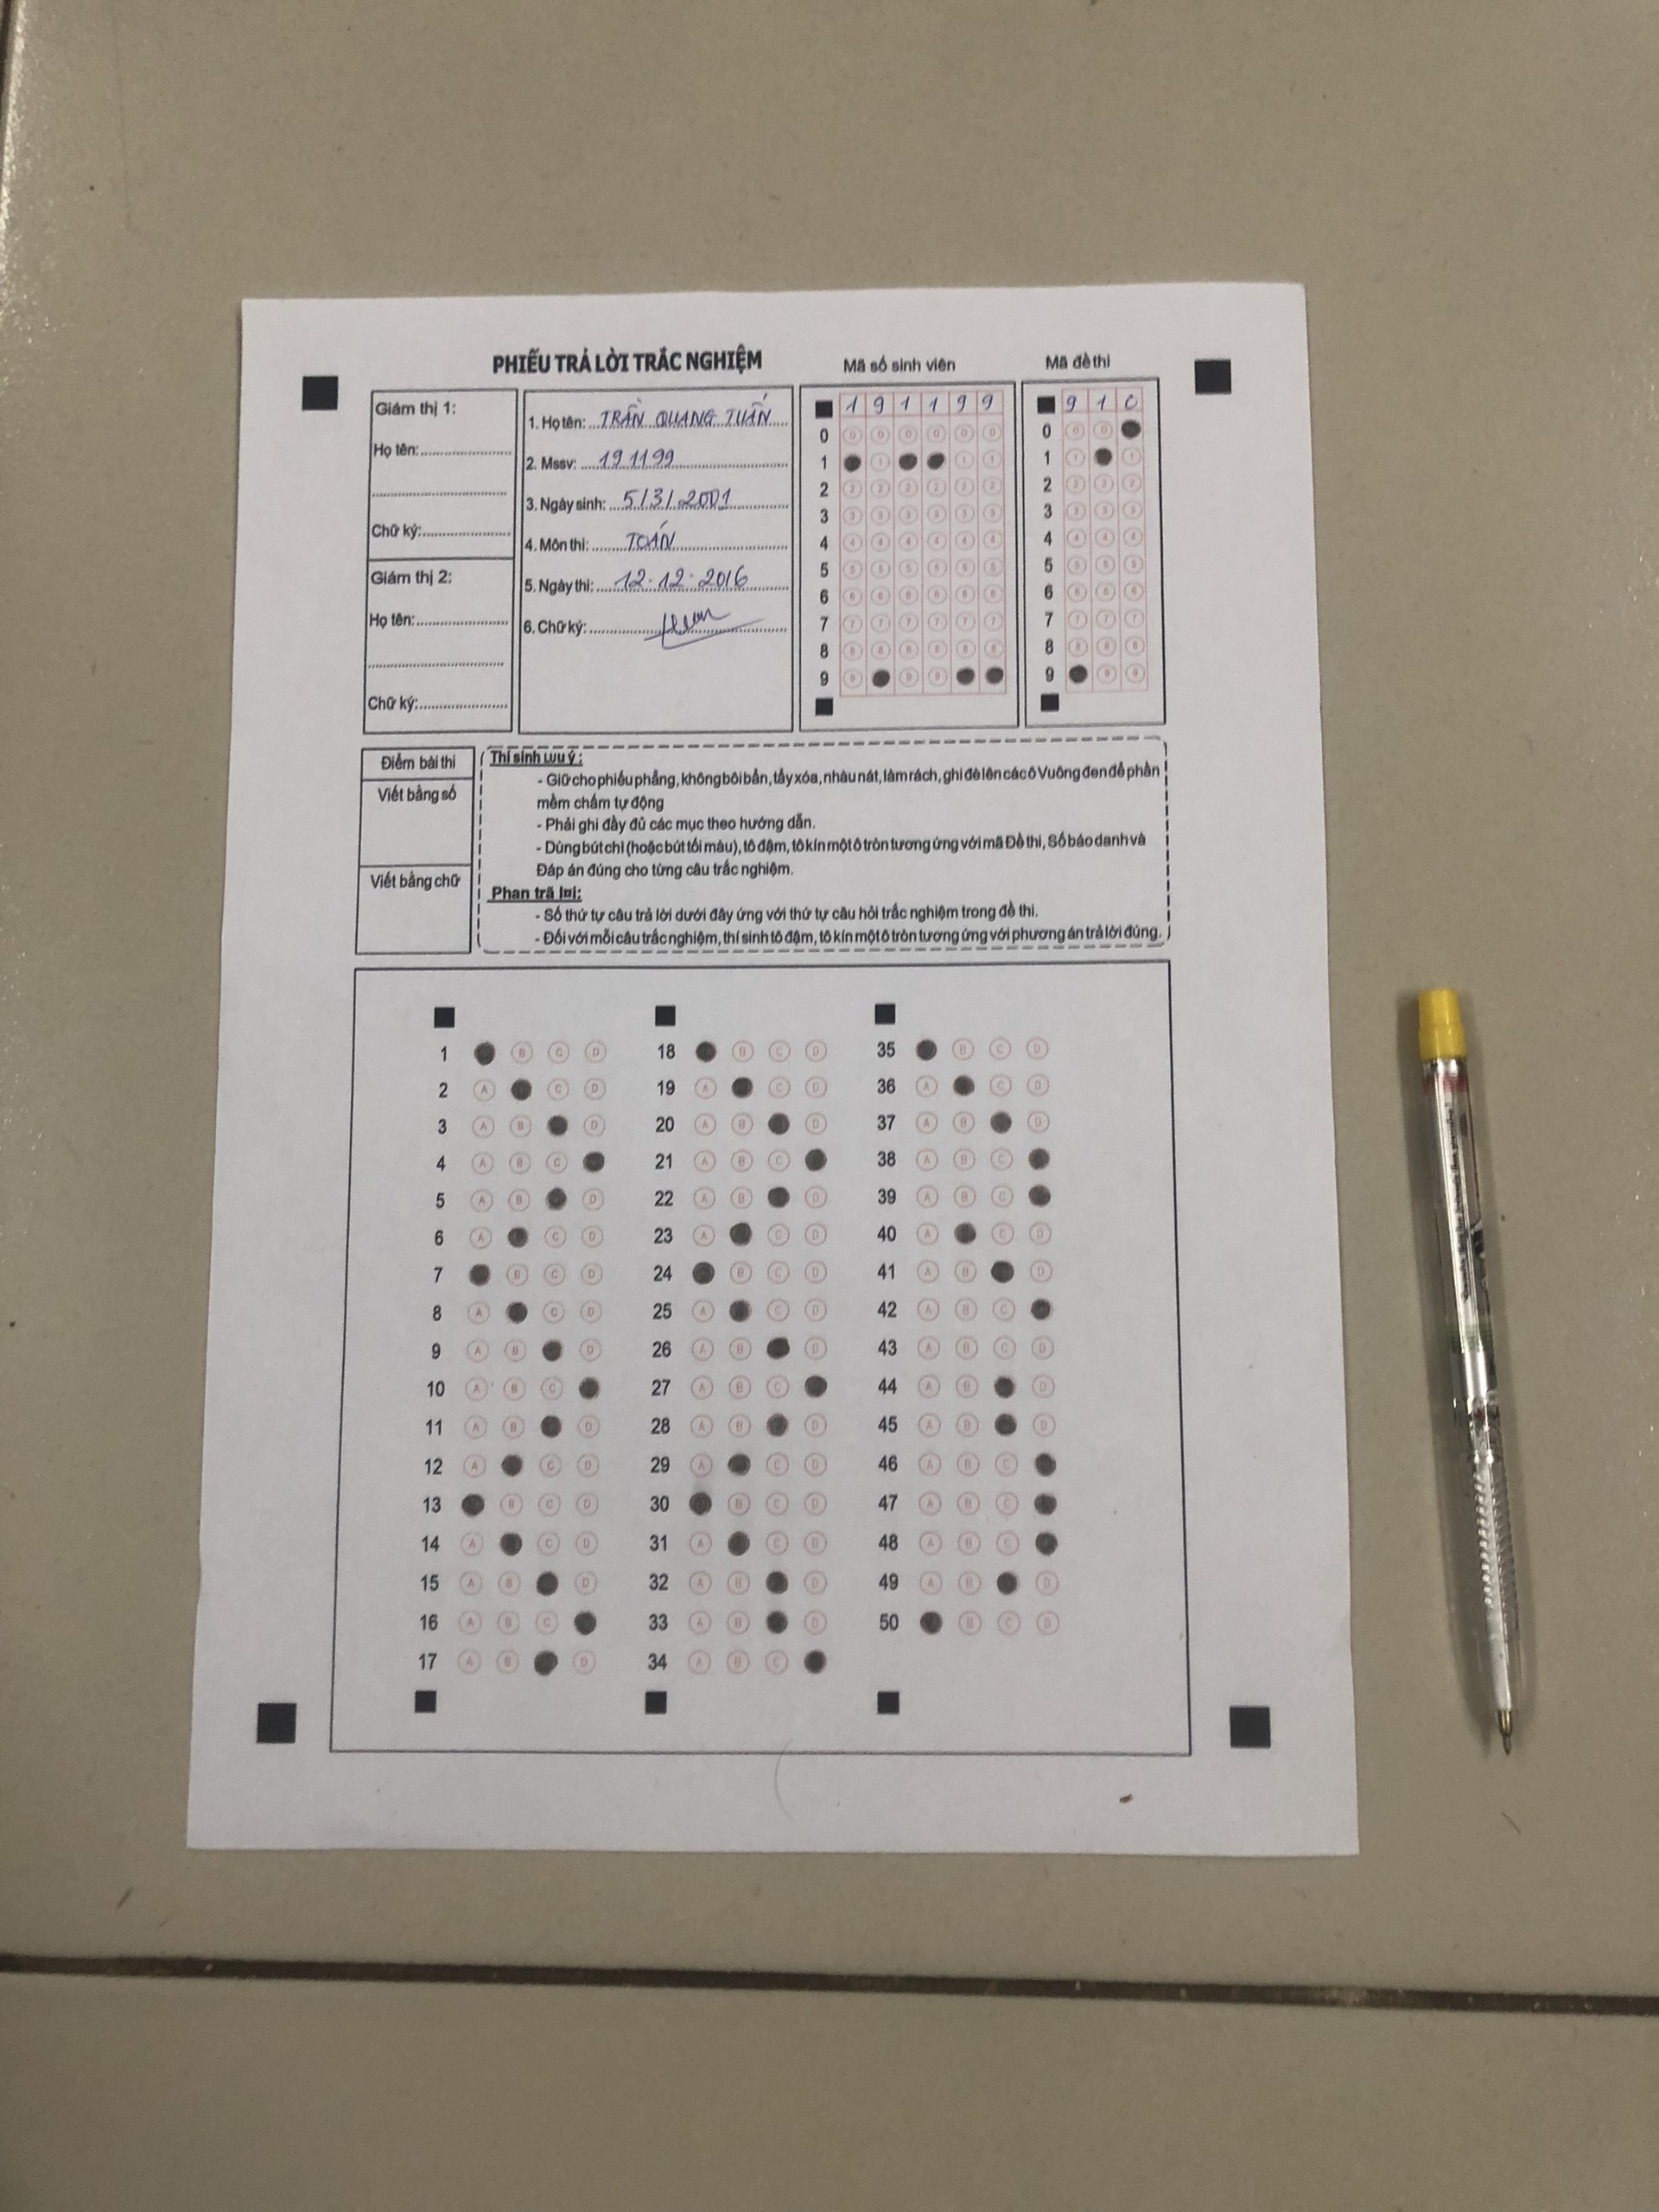 PHIẾU TRẢ LỜI TRẮC NGHIỆM
Mã số sinh viên
Mã đề thi
Giám thị 1:
Họ tên:
Chữ ký:
Giám thị 2:
Họ tên:
Chữ ký:
1. Họ tên: TRẦN QUANG TUẤN
2. Mssv: 191199
3. Ngày sinh: 5/3/2001
4. Môn thi: TOÁN
5. Ngày thi: 12.12.2016
6. Chữ ký:
1 9 1 1 9 9
0 0 0 0 0 0 0
1 1 1 1
2 2 2 2 2 2 2
3 3 3 3 3 3 3
4 4 4 4 4 4 4
5 5 5 5 5 5 5
6 6 6 6 6 6 6
7 7 7 7 7 7 7
8 8 8 8 8 8 8
9 9 9 9
9 1 0
0 0 0
1 1 1
2 2 2 2
3 3 3 3
4 4 4 4
5 5 5 5
6 6 6 6
7 7 7 7
8 8 8 8
9 9 9
Điểm bài thi
Viết bằng số
Viết bằng chữ
Thí sinh lưu ý:
- Giữ cho phiếu phẳng, không bôi bẩn, tẩy xóa, nhàu nát, làm rách, ghi đè lên các ô Vuông đen để phần
mềm chấm tự động
- Phải ghi đầy đủ các mục theo hướng dẫn.
- Dùng bút chì (hoặc bút tối màu), tô đậm, tô kín một ô tròn tương ứng với mã Đề thi, Số báo danh và
Đáp án đúng cho từng câu trắc nghiệm.
Phan trã lơi:
- Số thứ tự câu trả lời dưới đây ứng với thứ tự câu hỏi trắc nghiệm trong đề thi.
- Đối với mỗi câu trắc nghiệm, thí sinh tô đậm, tô kín một ô tròn tương ứng với phương án trả lời đúng.
1 B C D
2 A C D
3 A B D
4 A B C
5 A B D
6 A C D
7 B C D
8 A C D
9 A B D
10 A B C
11 A B D
12 A C D
13 B C D
14 A C D
15 A B D
16 A B C
17 A B D
18 B C D
19 A C D
20 A B D
21 A B C
22 A B D
23 A C D
24 B C D
25 A C D
26 A B D
27 A B C
28 A B D
29 A C D
30 B C D
31 A C D
32 A B D
33 A B D
34 A B C
35 B C D
36 A C D
37 A B D
38 A B C
39 A B C
40 A C D
41 A B D
42 A B C
43 A B C D
44 A B D
45 A B D
46 A B C
47 A B C
48 A B C
49 A B D
50 B C D